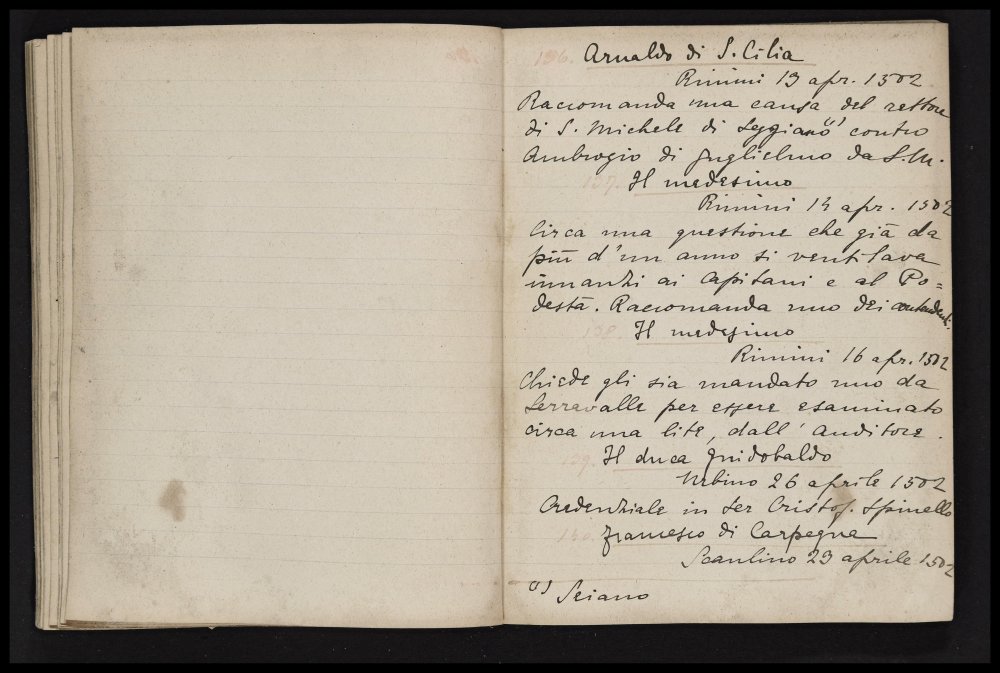 136. Arnaldo di S. Cilia
Rimini 13 apr. 1502
Raccomanda una causa del rettore
di S. Michele di Seggiano (1) contro
Ambrogio di Guglielmo da S. M.
137. Il medesimo
Rimini 14 apr. 1502
Circa una questione che già da
più d'un anno si ventilava
innanzi ai Capitani e al Po=
destà. Raccomanda uno dei contendenti.
138. Il medesimo
Rimini 16 apr. 1502
Chiede gli sia mandato uno da
Serravalle per essere esaminato
circa una lite, dall'Auditore.
139. Il duca Guidobaldo
Urbino 26 aprile 1502
Credenziale in Ser Cristof. Spinello
140. Francesco di Carpegna
Scaulino 29 aprile 1502
(1) Seiano